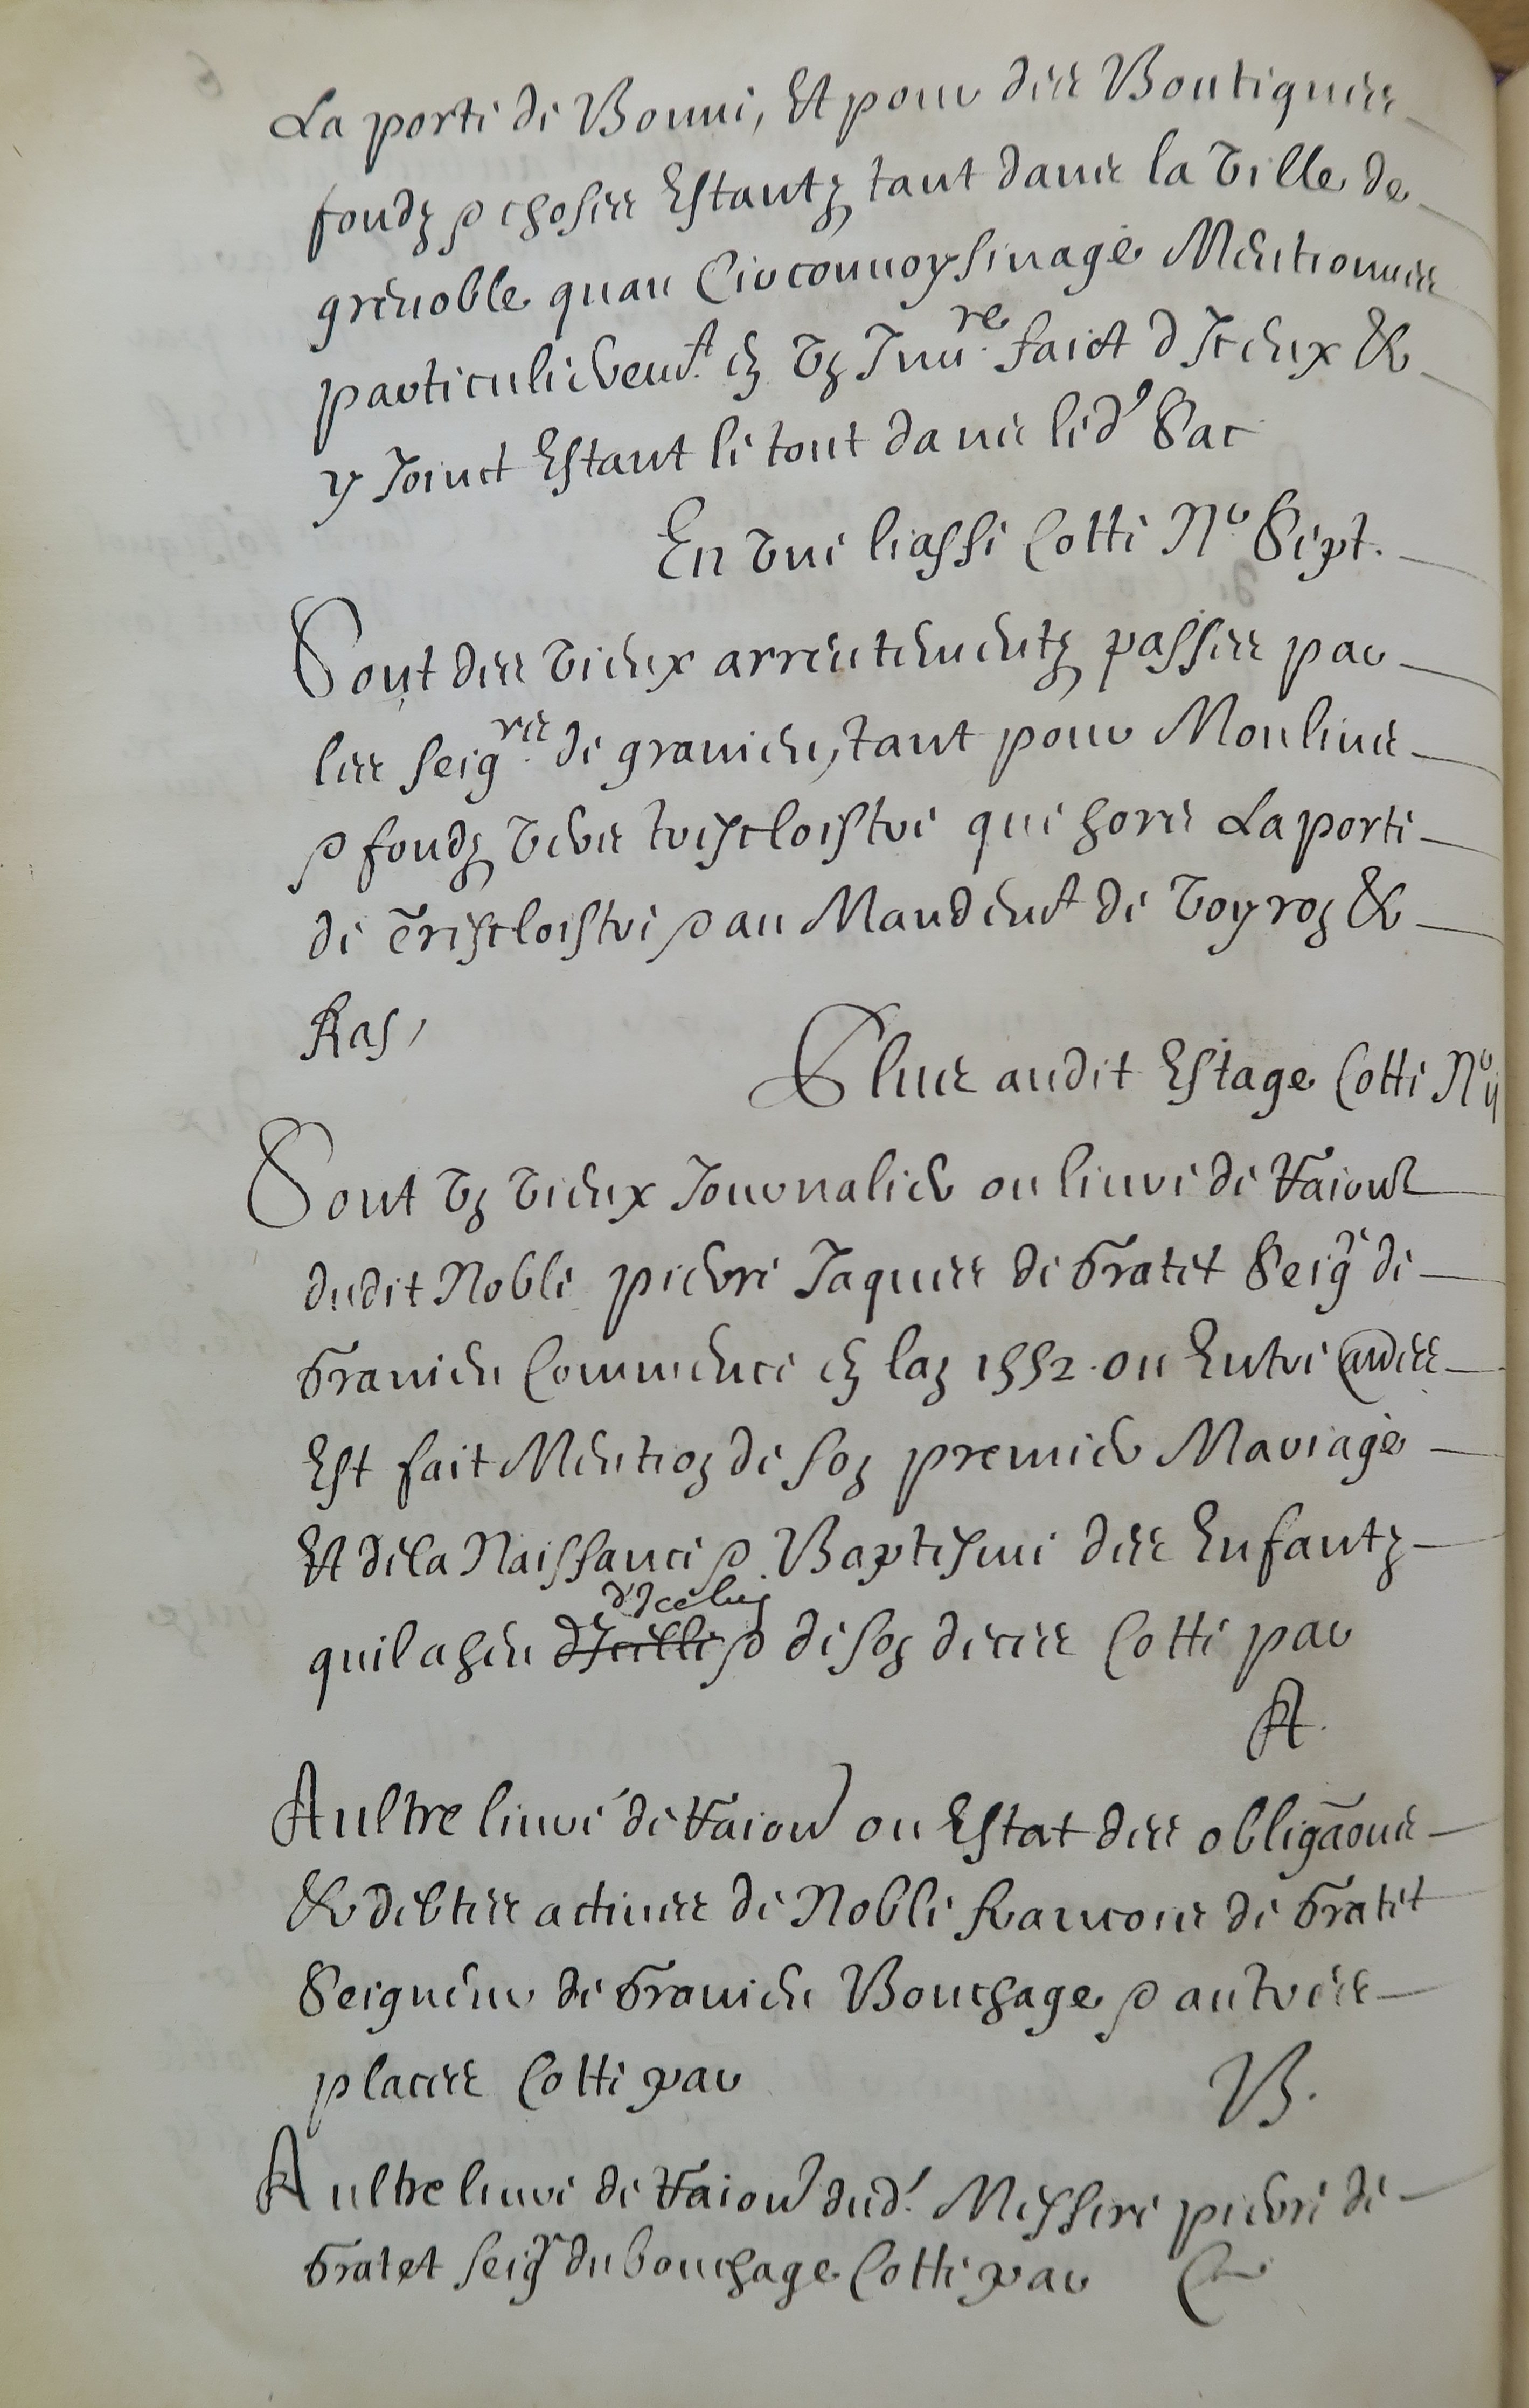 La porte de Bonne, Et pour des Boutiques
fondz & choses Estantz tant dans la Ville de
grenoble quau Circonuoysinage Mentionnes
particulierem.t en vn Inu.re faict d'Iceux &
y Joinct Estant le tout dans led.t Sac
En vne liasse Cotte N.o Sept.
Sont des vieux arrentementz passes par
les seig.rs de granieu, tant pour Moulins
& fondz vers troiscloistre que hors La porte
de Troiscloistre & au Mandem.t de Voyron &
Ras,
Plus audit Estage Cotte N.o ij
Sont vn vieux Journalier ou liure de Raison
dudit Noble pierre Jaques de Gratet Seig.r de
Granieu Commence en lan 1552. ou Entre autres
Est fait Mention de son premier Mariage
Et de la Naissance & Baptesme des Enfantz
quil a heu d'Icelle & de son deces Cotte par
d'Iceluy
A.
Aultre liure de Raison ou Estat des obligãons
& debtes actiues de Noble francois de Gratet
Seigneur de Granieu Bouchage & autres
places Cotte par
B.
Aultre liure de Raison dud.t Messire pierre de
Gratet seig.r du bouchage Cotte par C